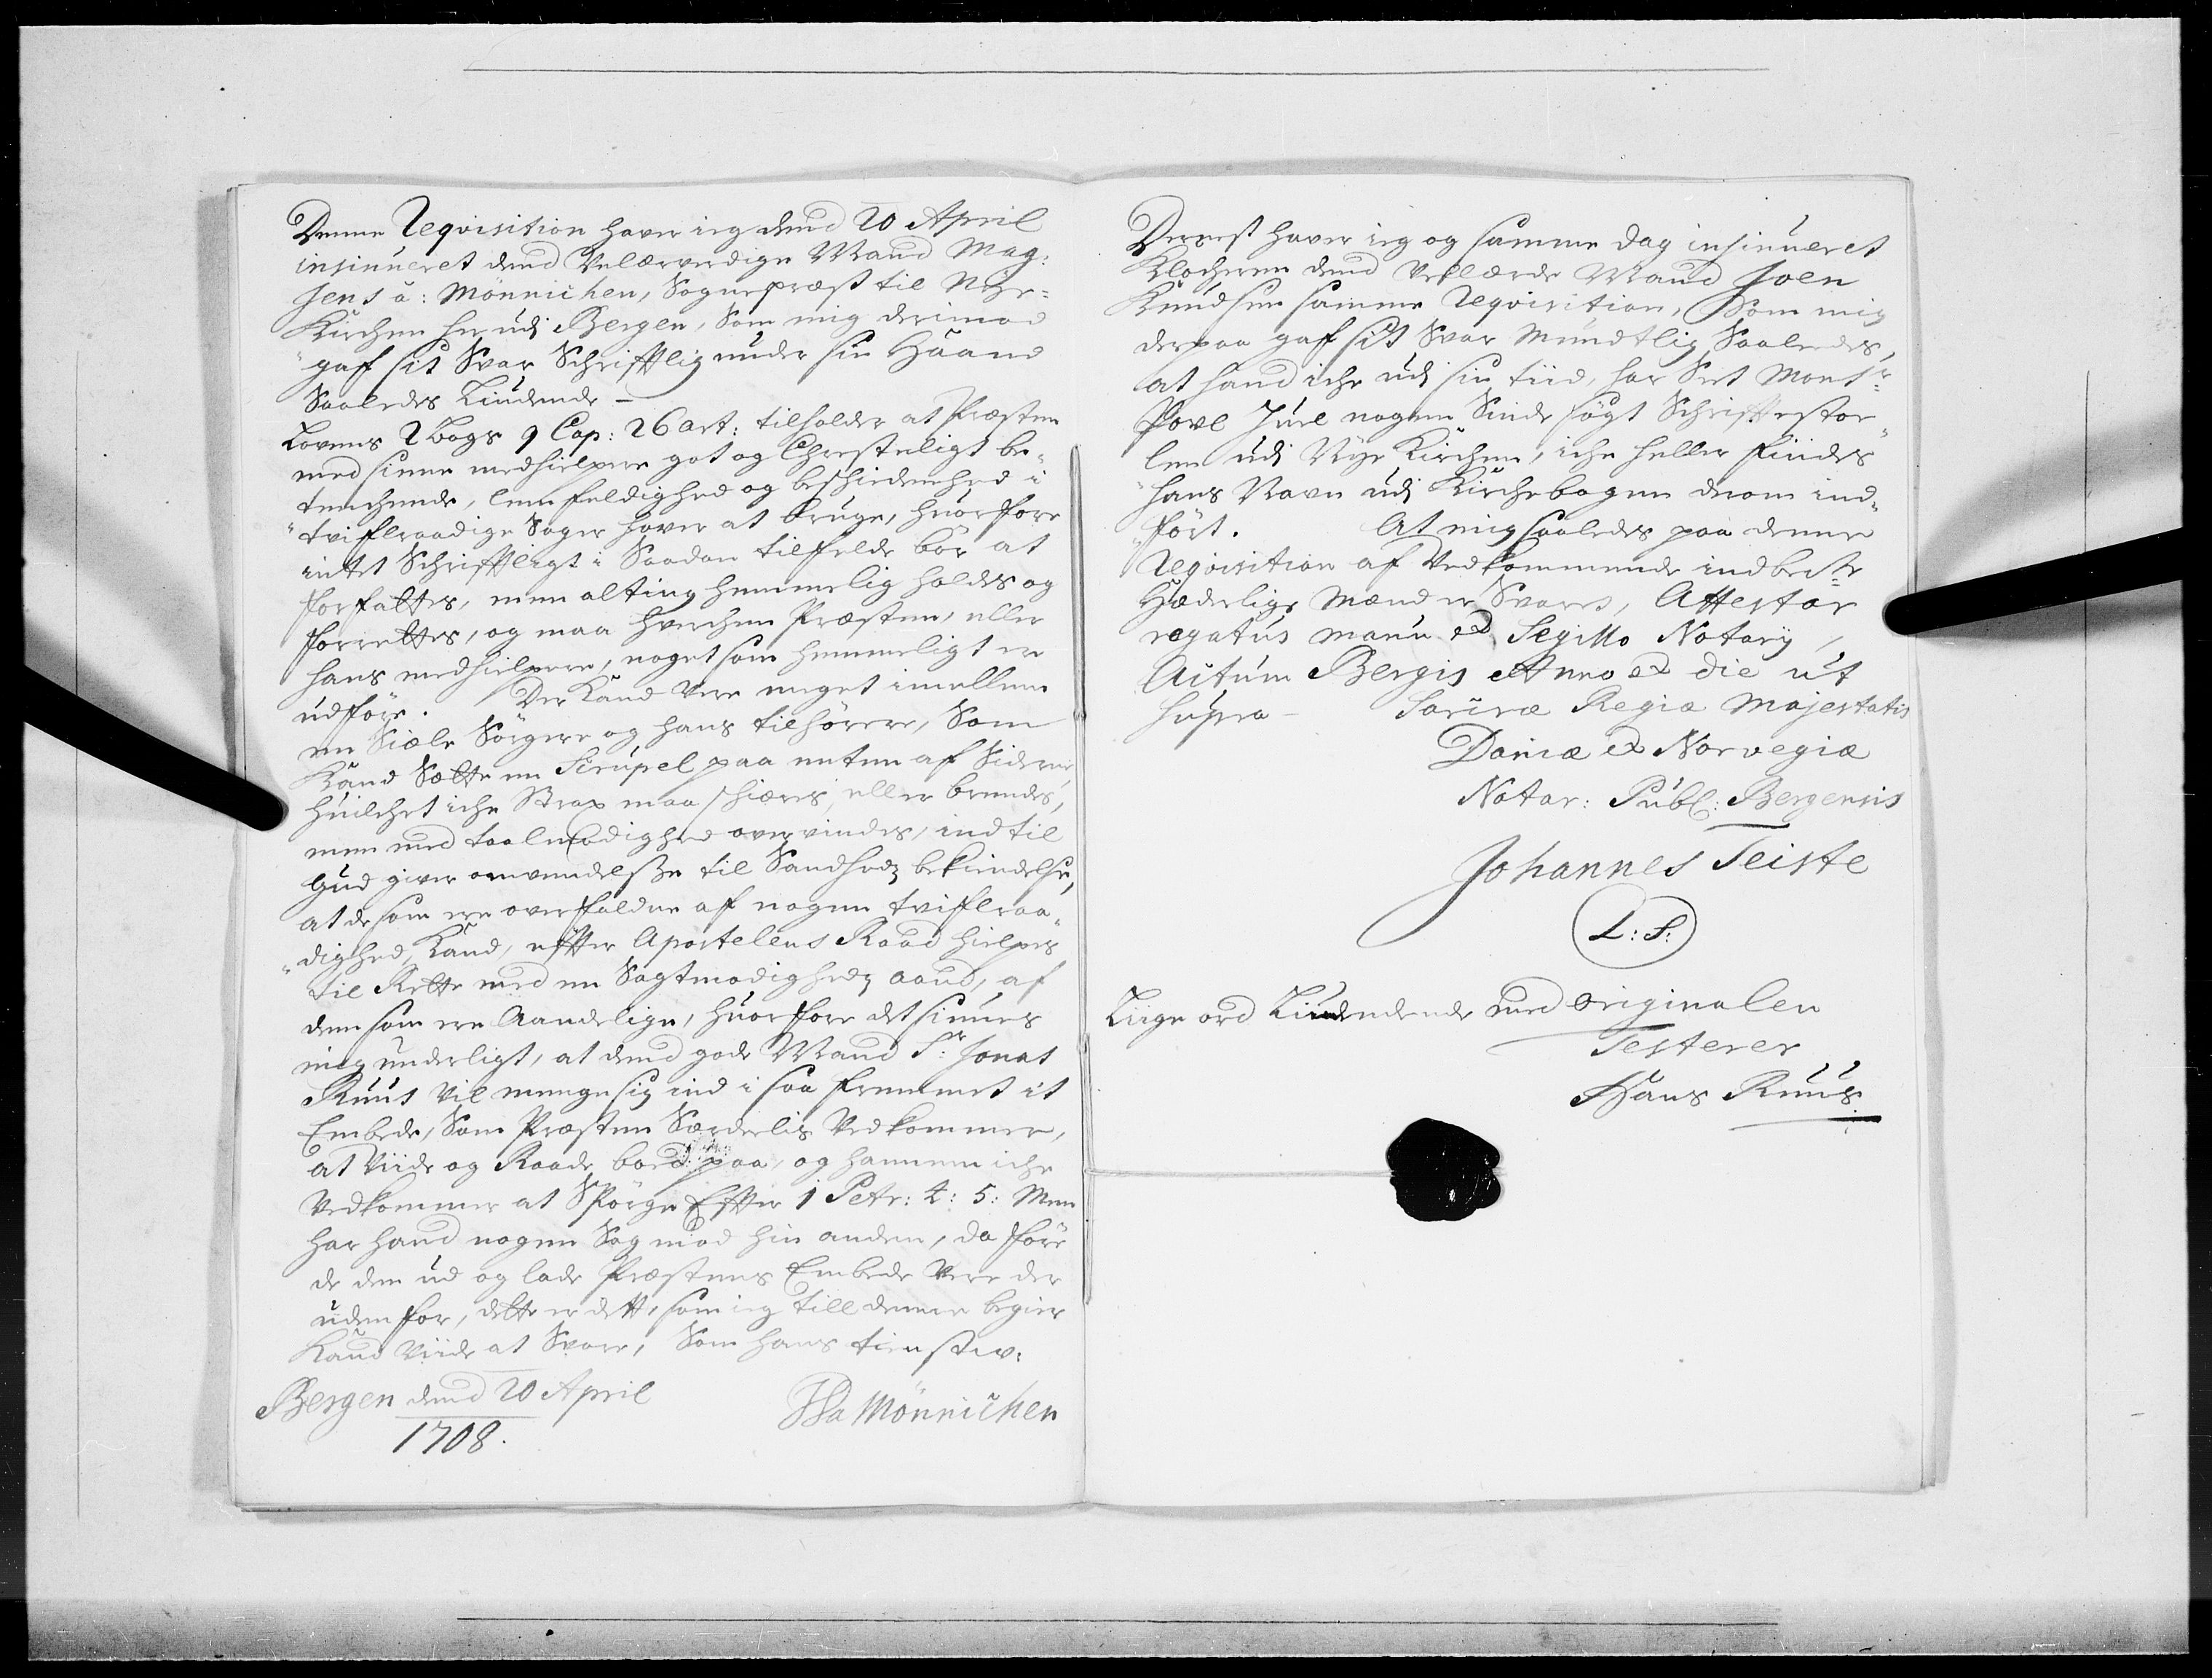 Denne Reqvisition haver ieg dend 20 April
insinueret dend Velærverdige Mand Mag:
Jens à: Mönnichen, Sognepræst til Nye=
Kirchen her udi Bergen, Som mig derimod
gaf sit Svar Schrifftlig under sin Haand
Saaledes Liudende –
Lovens 2 Bogs 9 Cap: 26 art: tilholder at Præsten
med sinne medhielpere got og Chresteligt be-
tenchende, lemfeldighed og beschedenhed i
tvifflraadige Sager haver at bruge, huorfore
intet Schrifftligt i Saadan tilfelde bör at
forfattes, men alting hemmelig holdes og
forrettes, og maa hverchen Præsten, eller
hans medhielpere, noget som hemmeligt er
udföre. Der Kand Vere meget imellem
en Siæle Sörgere og hans tilhörere, Som
Kand Sætte en Scrupel paa enten af Siderne
huilchet iche Strax maa schieres, eller brendes,
men med taalmodighed overvindes, indtil
Gud giver omvendelsse til Sandhedz bekiendelse,
at de som ere overfaldne af nogen tvifflraa-
dighed, Kand, effter Apostelens Raad hielpes
til Rette med en Sagtmodighedz aand, af
dem som ere Aandelige, huorfore det siunes
mig underligt, at dend gode Mand Sr: Jonas
Ruus vil menge sig ind i saa fremmet it
Embede, Som Præsten Særdelis Vedkommer,
at Viide og Raade bod paa, og hannem iche
Vedkommer at Spörge Effter 1 Petr: 4: 5: Men
har hand nogen Sag mod hin anden, da före
de den ud og lade Præstens Embede Vere der
uden for, dette er dett, som ieg till denne begier
Kand Viide at Svare, Som hans tienstv:
Bergen dend 20 April
1708.
JSa Mönnichen
Dernest haver ieg og samme dag insinueret
Klocheren dend Vellærde Mand Joen
Knudsen samme Reqvisition, Som mig
derpaa gaf sit Svar Mundtlig Saaledes,
at hand iche udi sin tiid, har Seet Monsr:
Povl Juel nogen Sinde sögt Schrifftestoe-
len udi Nye Kirchen, iche heller findes
hans Navn udi Kirchebogen derom ind-
fört. At mig saaledes paa denne
Reqvisition af Vedkommende indbeste
Hæderlige Mænd er Svaret, Attestor
rogatus manu et Sigillo Notarij,
Actum Bergis Anno et die ut
Supra – Sacræ Regiæ Majestatis
Daniæ et Norvegiæ
Notar: Publ: Bergensis
Johannes Teiste
L: S:
Liige ord Liudendende med Originalen
Testerer
Hans Ruus